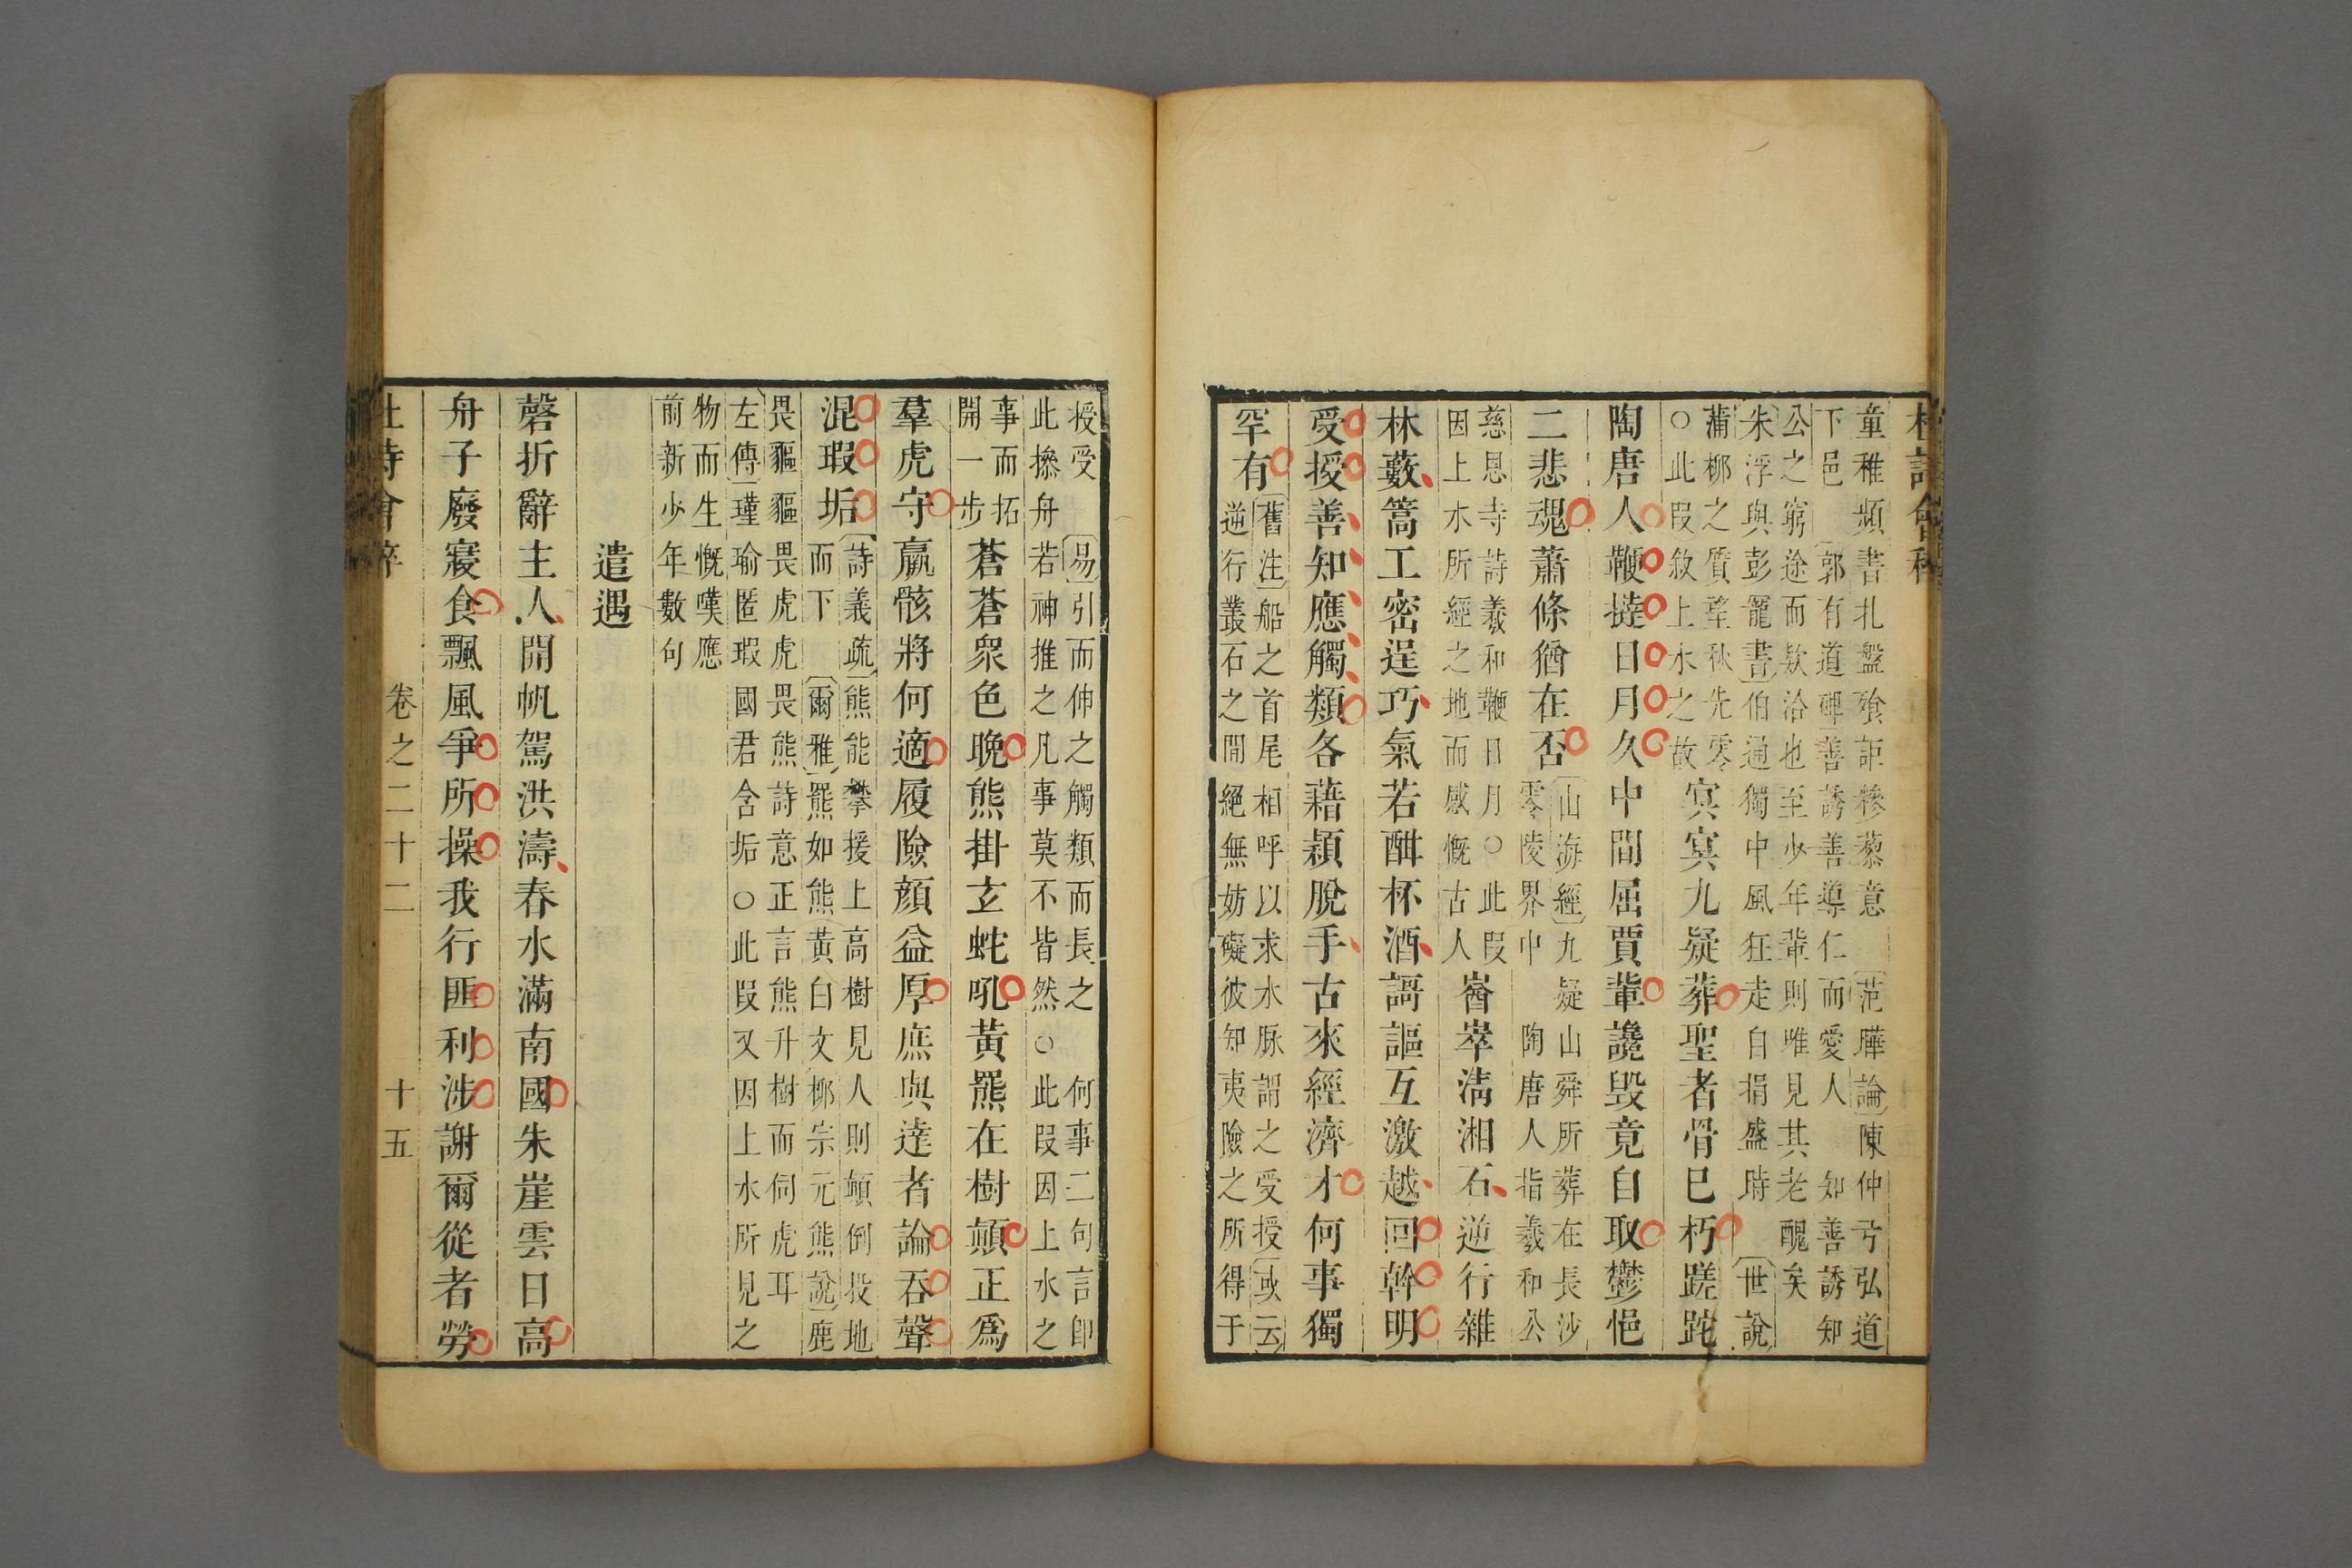 童稚頻書札盤飱詎糝藜意 范曄論陳仲弓弘道
下邑 郭有道碑善誘善導仁而愛人 知善誘知
公之窮途而欵洽也至少年輩則唯見其老醜矣
朱浮與彭寵書伯通獨中風狂走自捐盛時 世說
蒲柳之質望秋先零
○此叚敘上水之故
冥冥九疑葬聖者骨巳朽蹉跎
陶唐人鞭撻日月久中間屈賈輩讒毀竟自取鬱悒
二悲魂蕭條猶在否
山海經九疑山舜所葬在長沙
零陵界中 陶唐人指羲和公
慈恩寺詩羲和鞭日月○此叚
因上水所經之地而感慨古人
崒清湘石逆行雜
林藪篙工密逞巧氣若酣杯酒謌謳互激越回斡明
受授善知應觸類各藉穎脫手古來經濟才何事獨
罕有
舊注船之首尾相呼以求水脉謂之受授或云
逆行叢石之間絕無妨礙彼知夷險之所得于
授受 易引而伸之觸類而長之 何事二句言卽
此摻舟若神推之凡事莫不皆然○此叚因上水之
事而拓
開一步
蒼蒼衆色晚熊掛玄蛇吼黃羆在樹顛正爲
羣虎守羸骸將何適履險顏益厚庶與達者論吞聲
混瑕垢
詩義疏熊能攀援上高樹見人則顛倒投地
而下 爾雅羆如熊黃白文柳宗元熊說鹿
畏貙貙畏虎虎畏熊詩意正言熊升樹而伺虎耳
左傳瑾瑜匿瑕國君含垢○此叚又因上水所見之
物而生慨嘆應
前新少年數句
遣遇
磬折辭主人開帆駕洪濤春水滿南國朱崖雲日高
舟子廢寢食飄風爭所操我行匪利涉謝爾從者勞
卷之二十二 十五